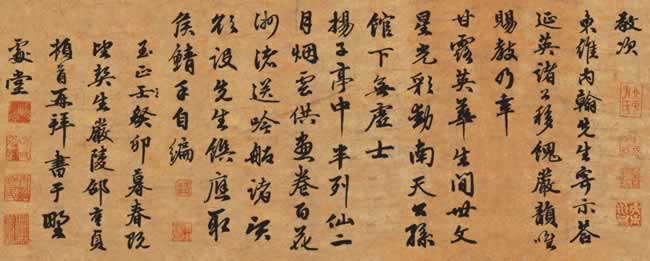 敬次
東維內翰先生寄示答
延英諸公移餽嚴韻唯
賜教乃幸
甘露英華生間世文
星光彩動南天公孫
館下無虛士
揚子亭中半列仙二
月烟雲供畫卷百花
洲渚送吟船諸賢
欲設先生饌應取
侯鯖手自編
至正壬癸卯暮春既
望契生嚴陵邵亨貞
頓首再拜書于野
處堂